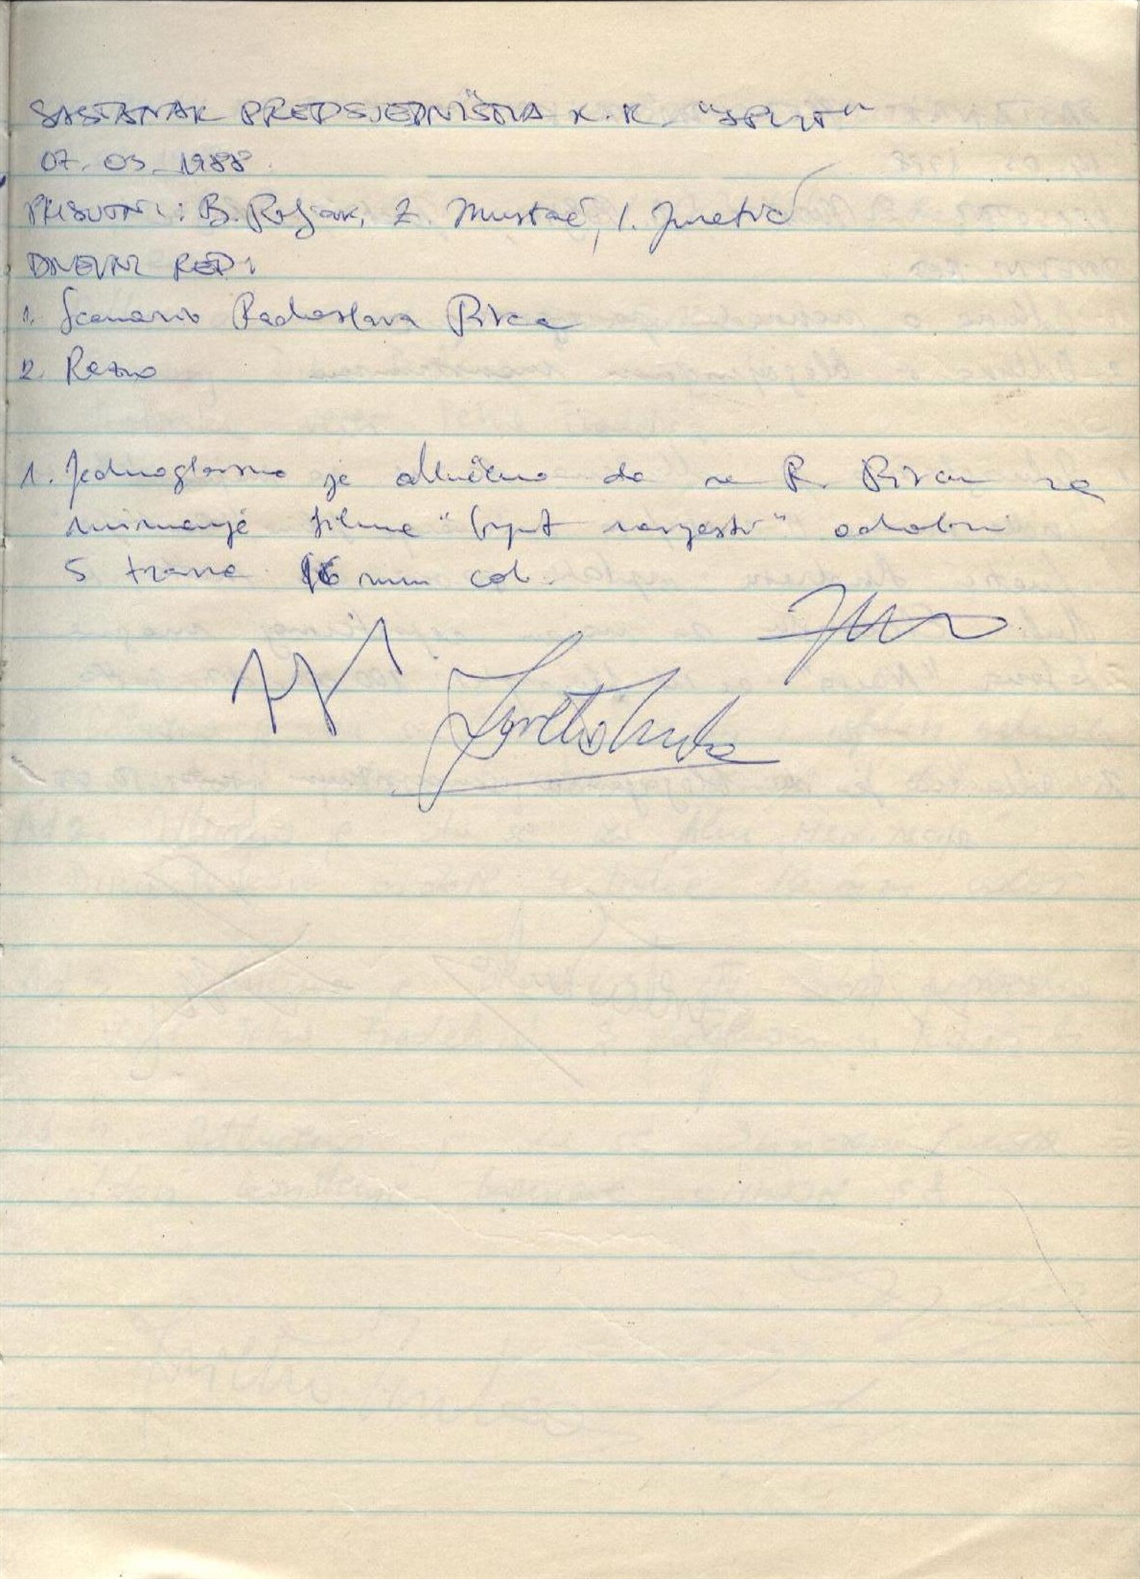 SASTANAK PREDSJEDNIŠTVA K.K. "SPLIT"
07. 03. 1988.
PRISUTNI: B. Poljak, Z. Mustać, I. Juretić
DNEVNI RED:
1. Scenario Radoslava Pivca
2. Razno
1. Jednoglasno je odlučeno da se R. Pivcu za
snimanje filma " savjesti" odobri
5 traka 16 mm col.